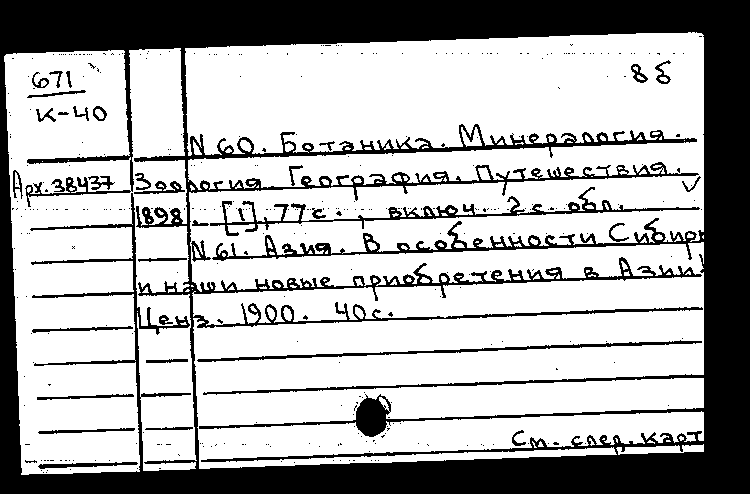 671
К-40
8б
N 60. Ботаника. Минералогия.
Арх. 38437 Зоология. География. Путешествия.
1898. [1], 77 с., включ. 2 с. обл.
N 61. Азия. В особенности Сибирь
и наши новые приобретения в Азии!
Ценз. 1900. 40 с.
См. след. карт